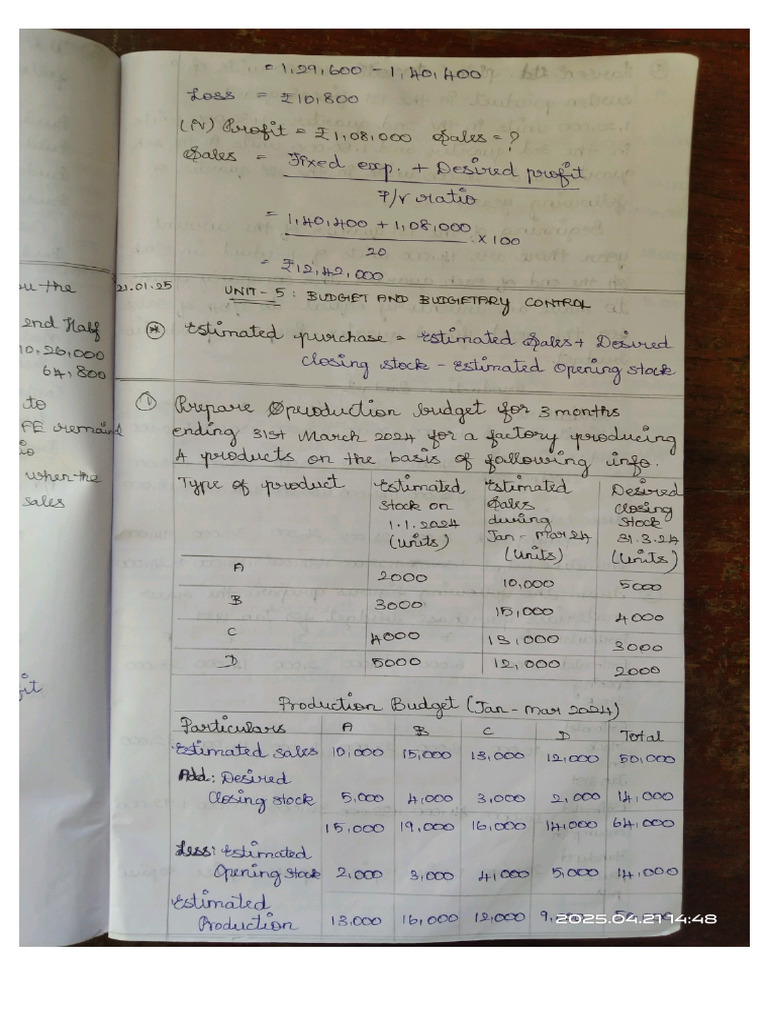 = 1,29,600 - 1,40,400
Loss = ₹10,800
(iv) Profit = ₹1,08,000 Sales = ?
Sales = Fixed exp. + Desired profit
P/V ratio
= 1,40,400 + 1,08,000
20 × 100
= ₹12,42,000
21.01.25 UNIT - 5 : BUDGET AND BUDGETARY CONTROL
* Estimated purchase = Estimated Sales + Desired
closing stock - Estimated Opening stock
① Prepare production budget for 3 months
ending 31st March 2024 for a factory producing
4 products on the basis of following info.
Type of product Estimated Stock on 1.1.2024 (Units) Estimated Sales during Jan - Mar 24 (Units) Desired closing stock 31.3.24 (Units)
A 2000 10,000 5000
B 3000 15,000 4000
C 4000 13,000 3000
D 5000 12,000 2000
Production Budget (Jan - Mar 2024)
Particulars A B C D Total
Estimated sales 10,000 15,000 13,000 12,000 50,000
Add: Desired
Closing stock 5,000 4,000 3,000 2,000 14,000
15,000 19,000 16,000 14,000 64,000
Less: Estimated
Opening stock 2,000 3,000 4,000 5,000 14,000
Estimated
Production 13,000 16,000 12,000
2025.04.21 14:48
the
2nd Half
10,26,000
64,800
to
FE remain
when the
sales